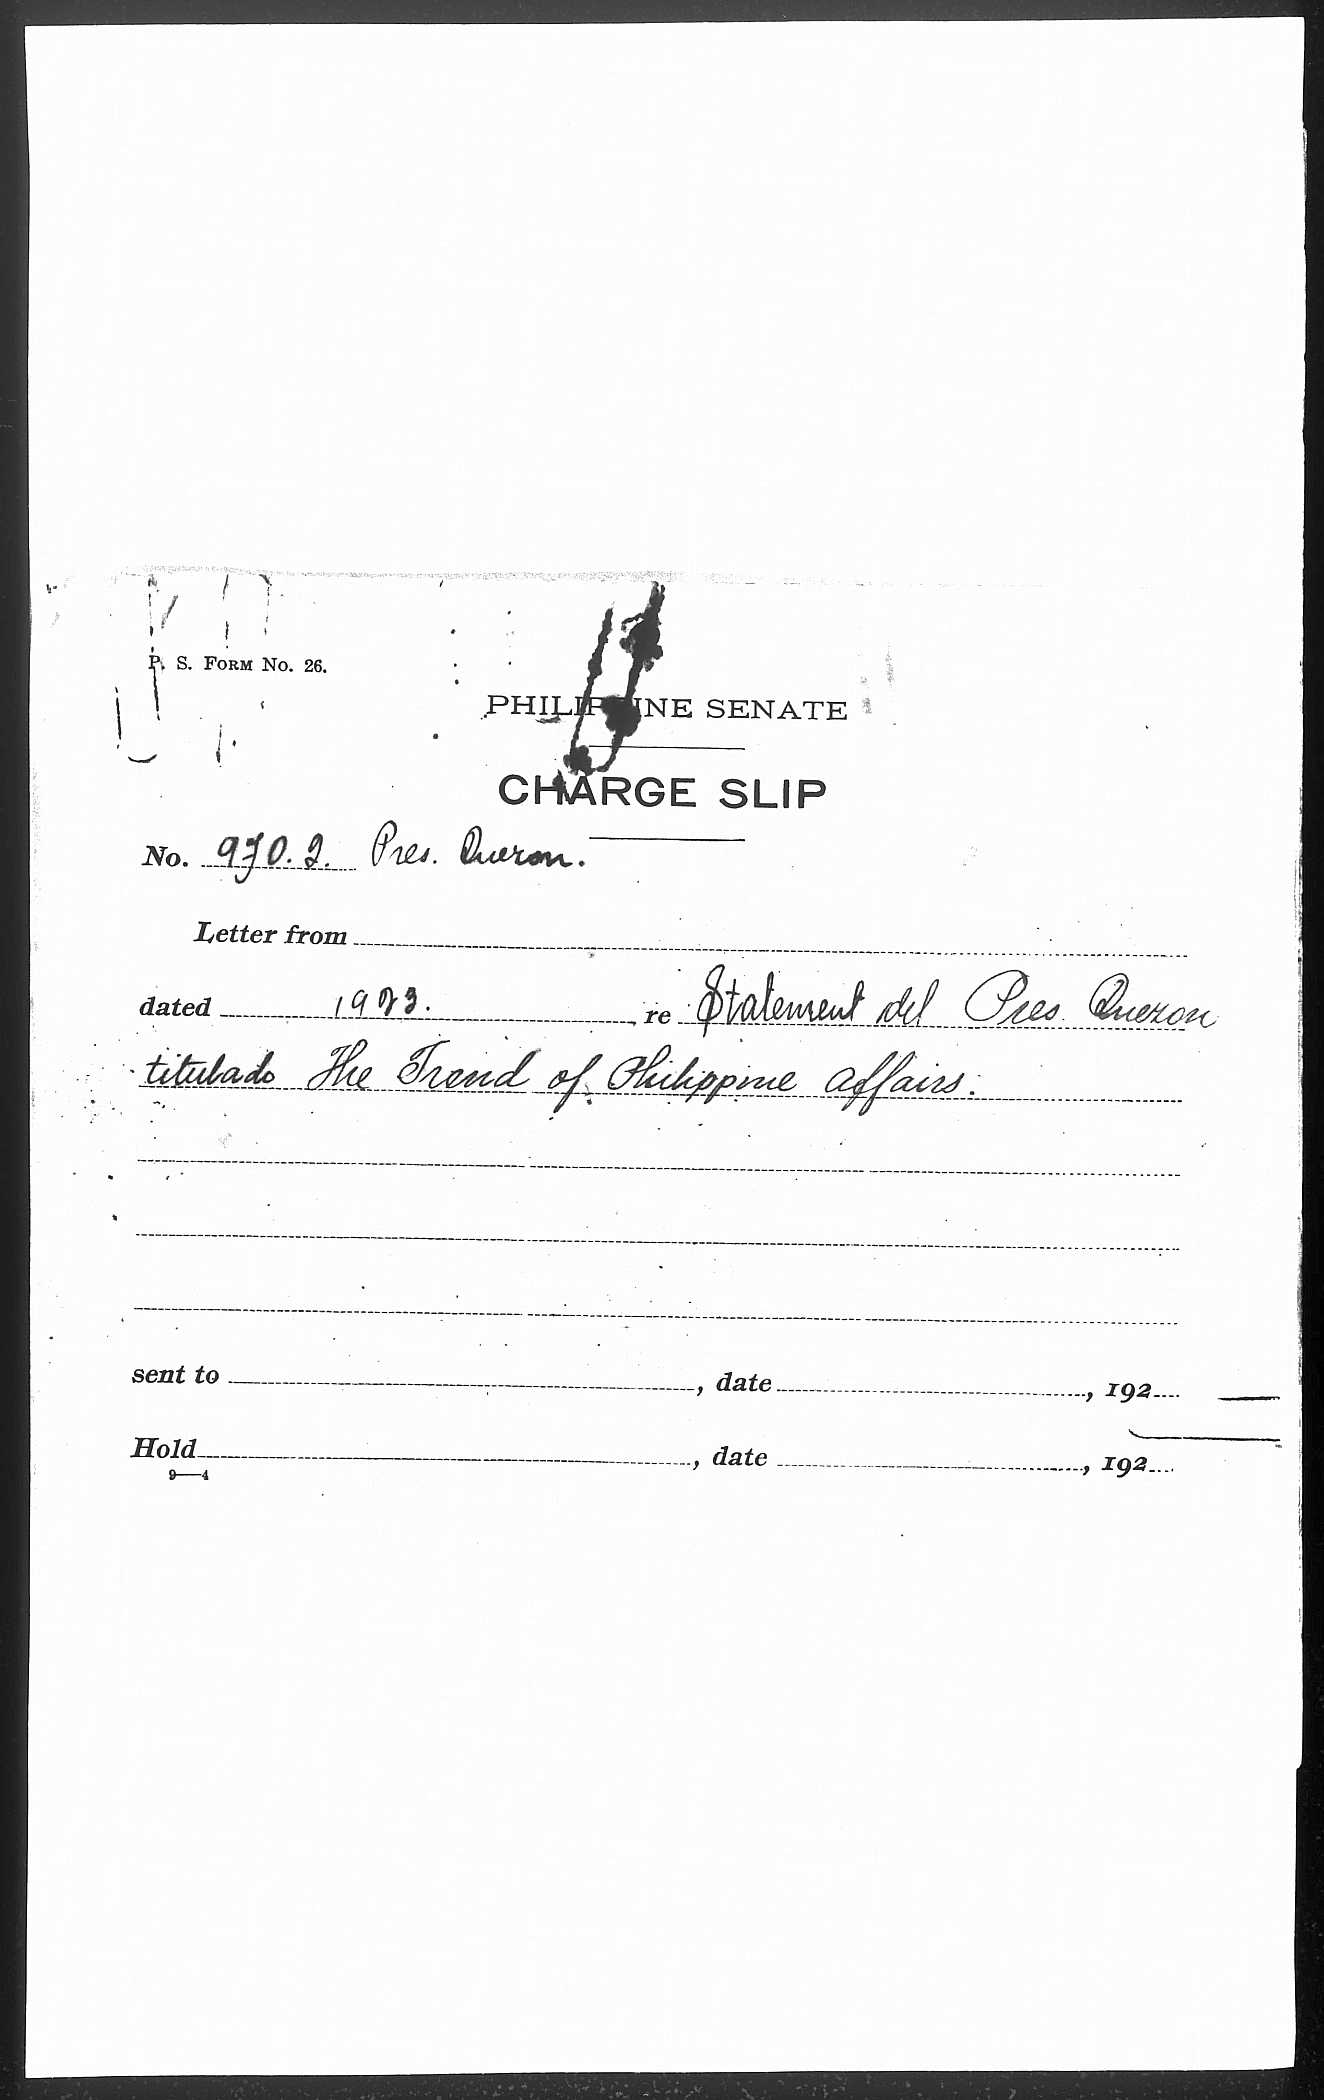 P. S. FORM NO. 26.
PHILIPPINE SENATE
CHARGE SLIP
No. 970.2. Pres. Quezon.
Letter from
dated 1923. re Statement del Pres. Quezon
titulado The Trend of Philippine affairs.
sent to , date , 192
Hold , date , 192
9—4